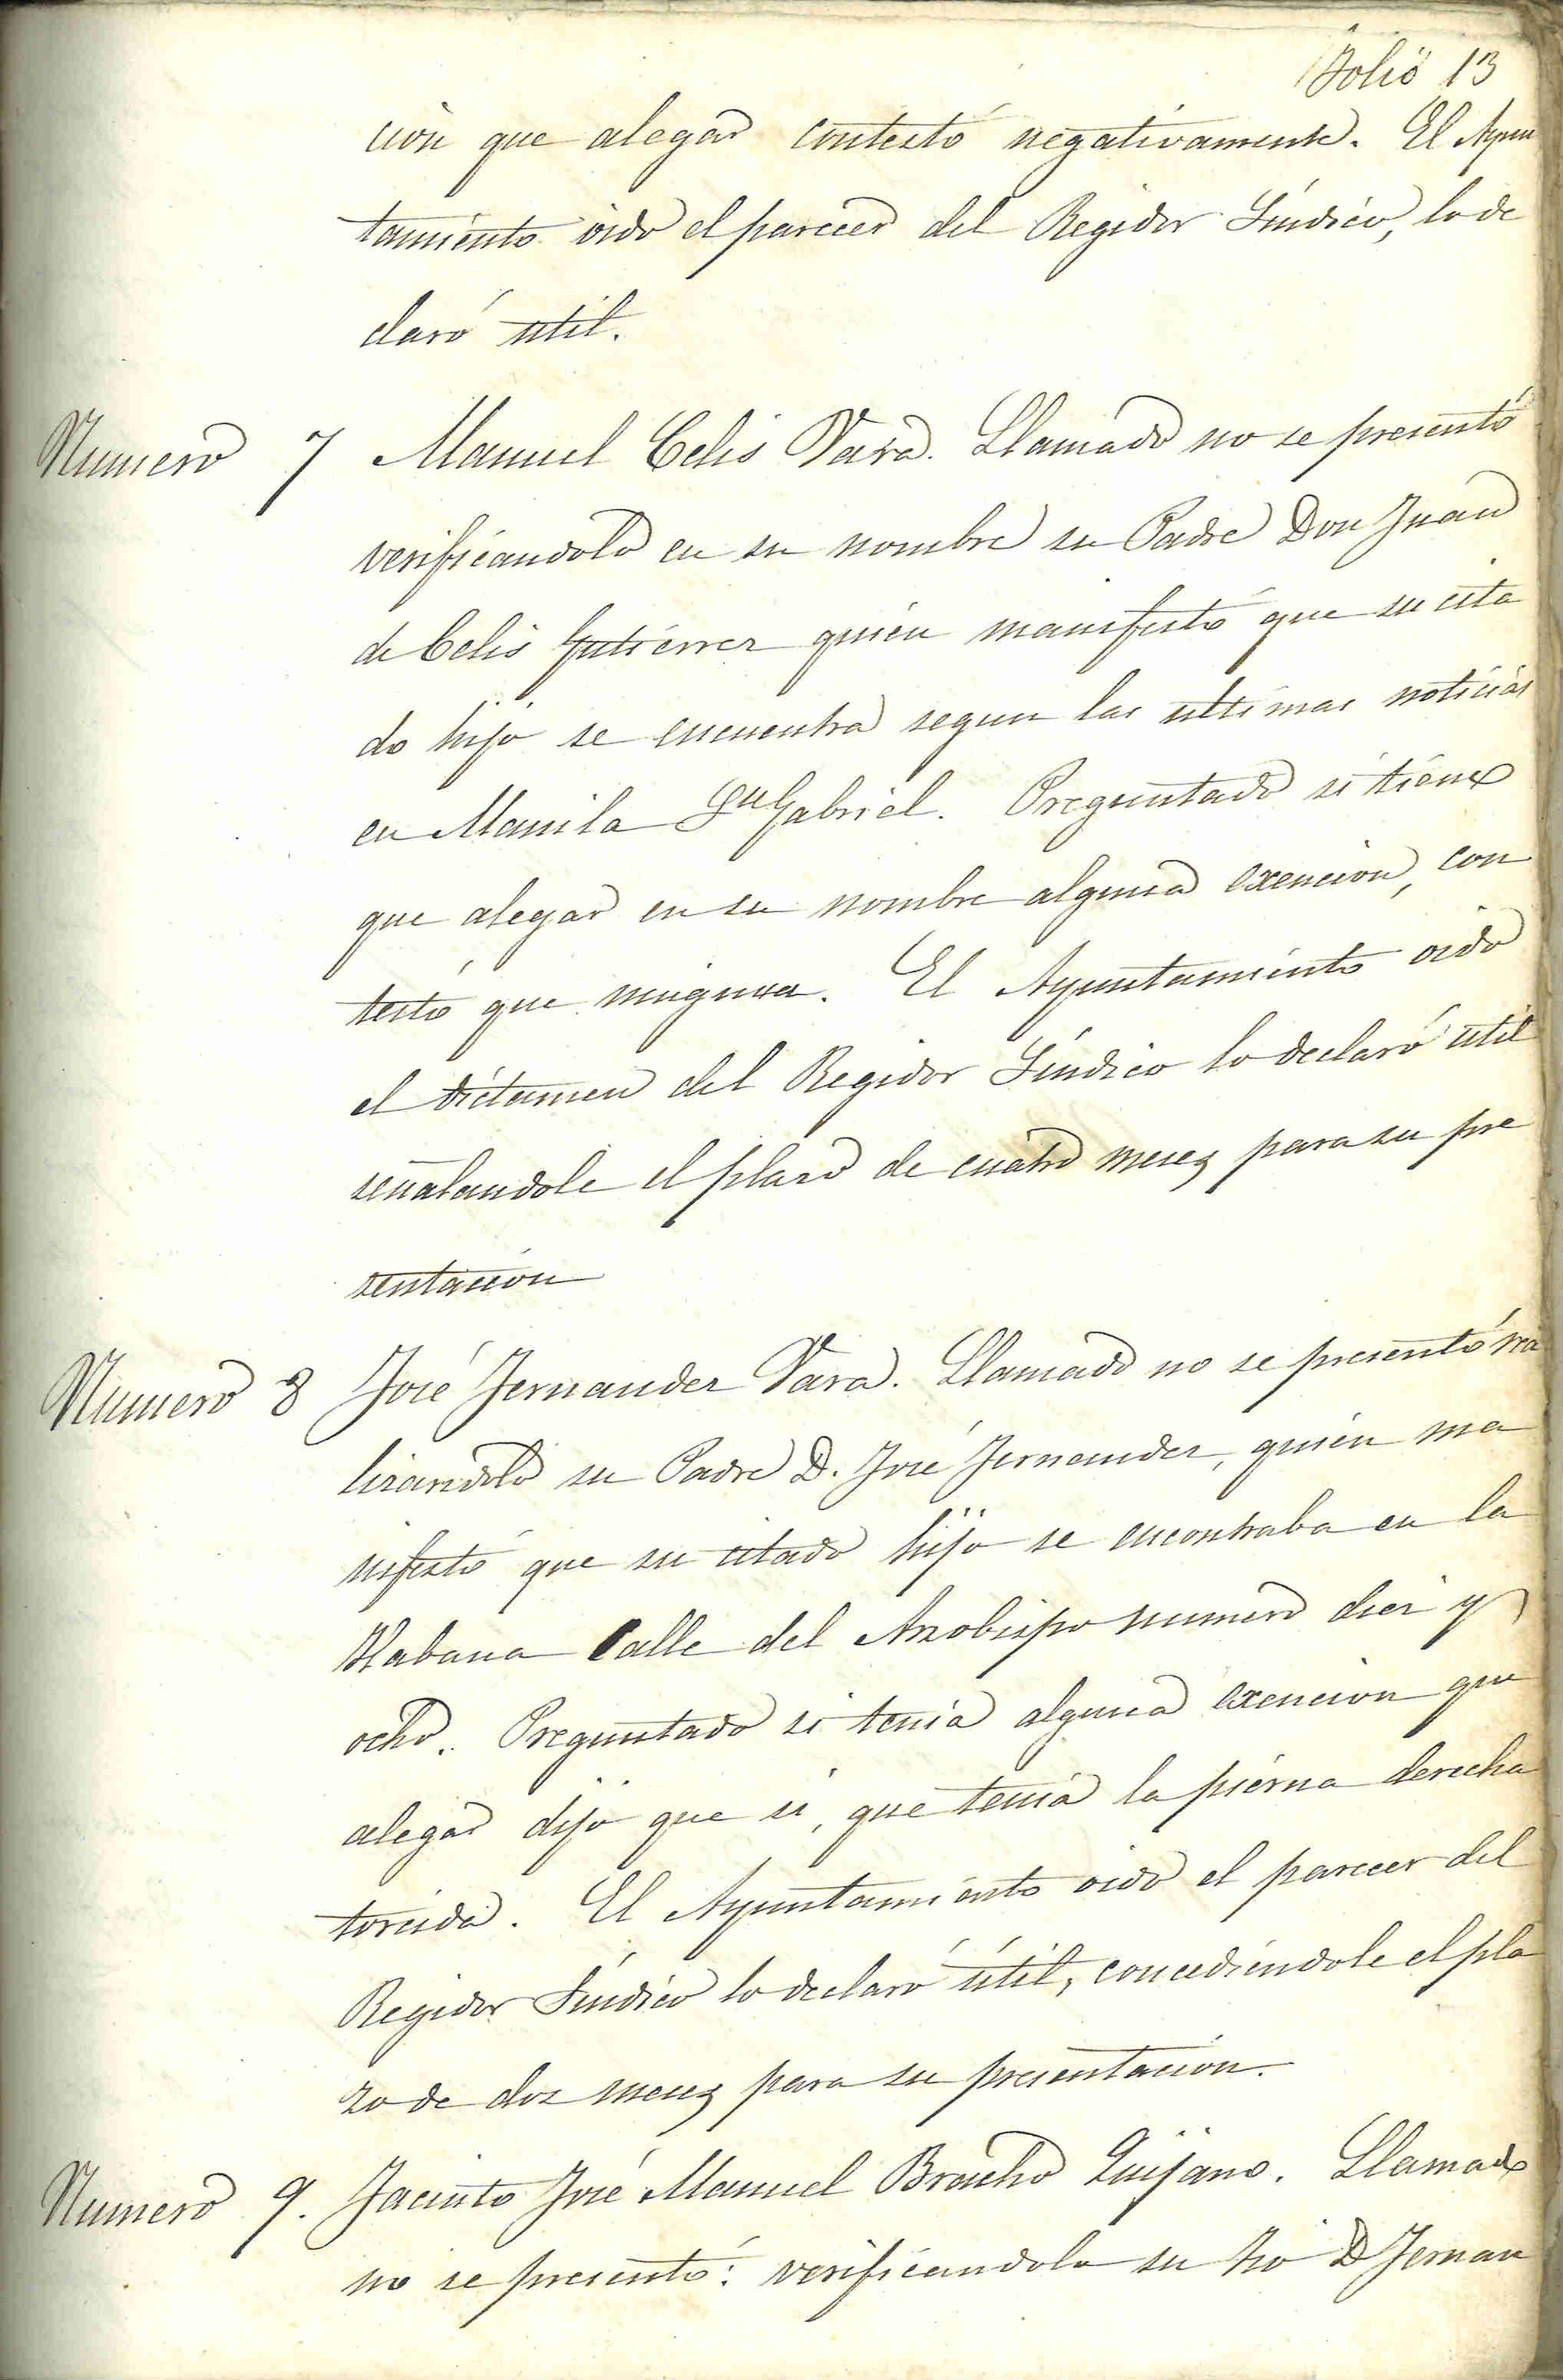 Folio 13
cion que alegar contestó negativamente. El Ayun
tamiento oido el parecer del Regidor Síndico, lo de
claró util.
Numero 7 Manuel Celis Vara. Llamado no se presentó
verificandolo en su nombre su Padre Don Juan
de Celis Gutierrez quien manifestó que su cita
do hijo se encuentra segun las ultimas noticias
en Manila Sn Gabriel. Preguntado si tiene
que alegar en su nombre alguna exencion, con
testó que ninguna. El Ayuntamiento oido
el dictamen del Regidor Síndico lo declaró util
señalandole el plazo de cuatro meses para su pre
sentacion
Numero 8 José Fernandez Vara. Llamado no se presentó rea
lizandolo su Padre D. José Fernandez, quien ma
nifestó que su citado hijo se encontraba en la
Habana Calle del Arzobispo numero diez y
ocho. Preguntado si tenia alguna exencion que
alegar dijo que si, que tenia la pierna derecha
torcida. El Ayuntamiento oido el parecer del
Regidor Síndico lo declaró útil, concediéndole el pla
zo de dos meses para su presentacion.
Numero 9. Jacinto José Manuel Bracho Quijano. Llamado
no se presentó: verificandolo su tio D Fernan